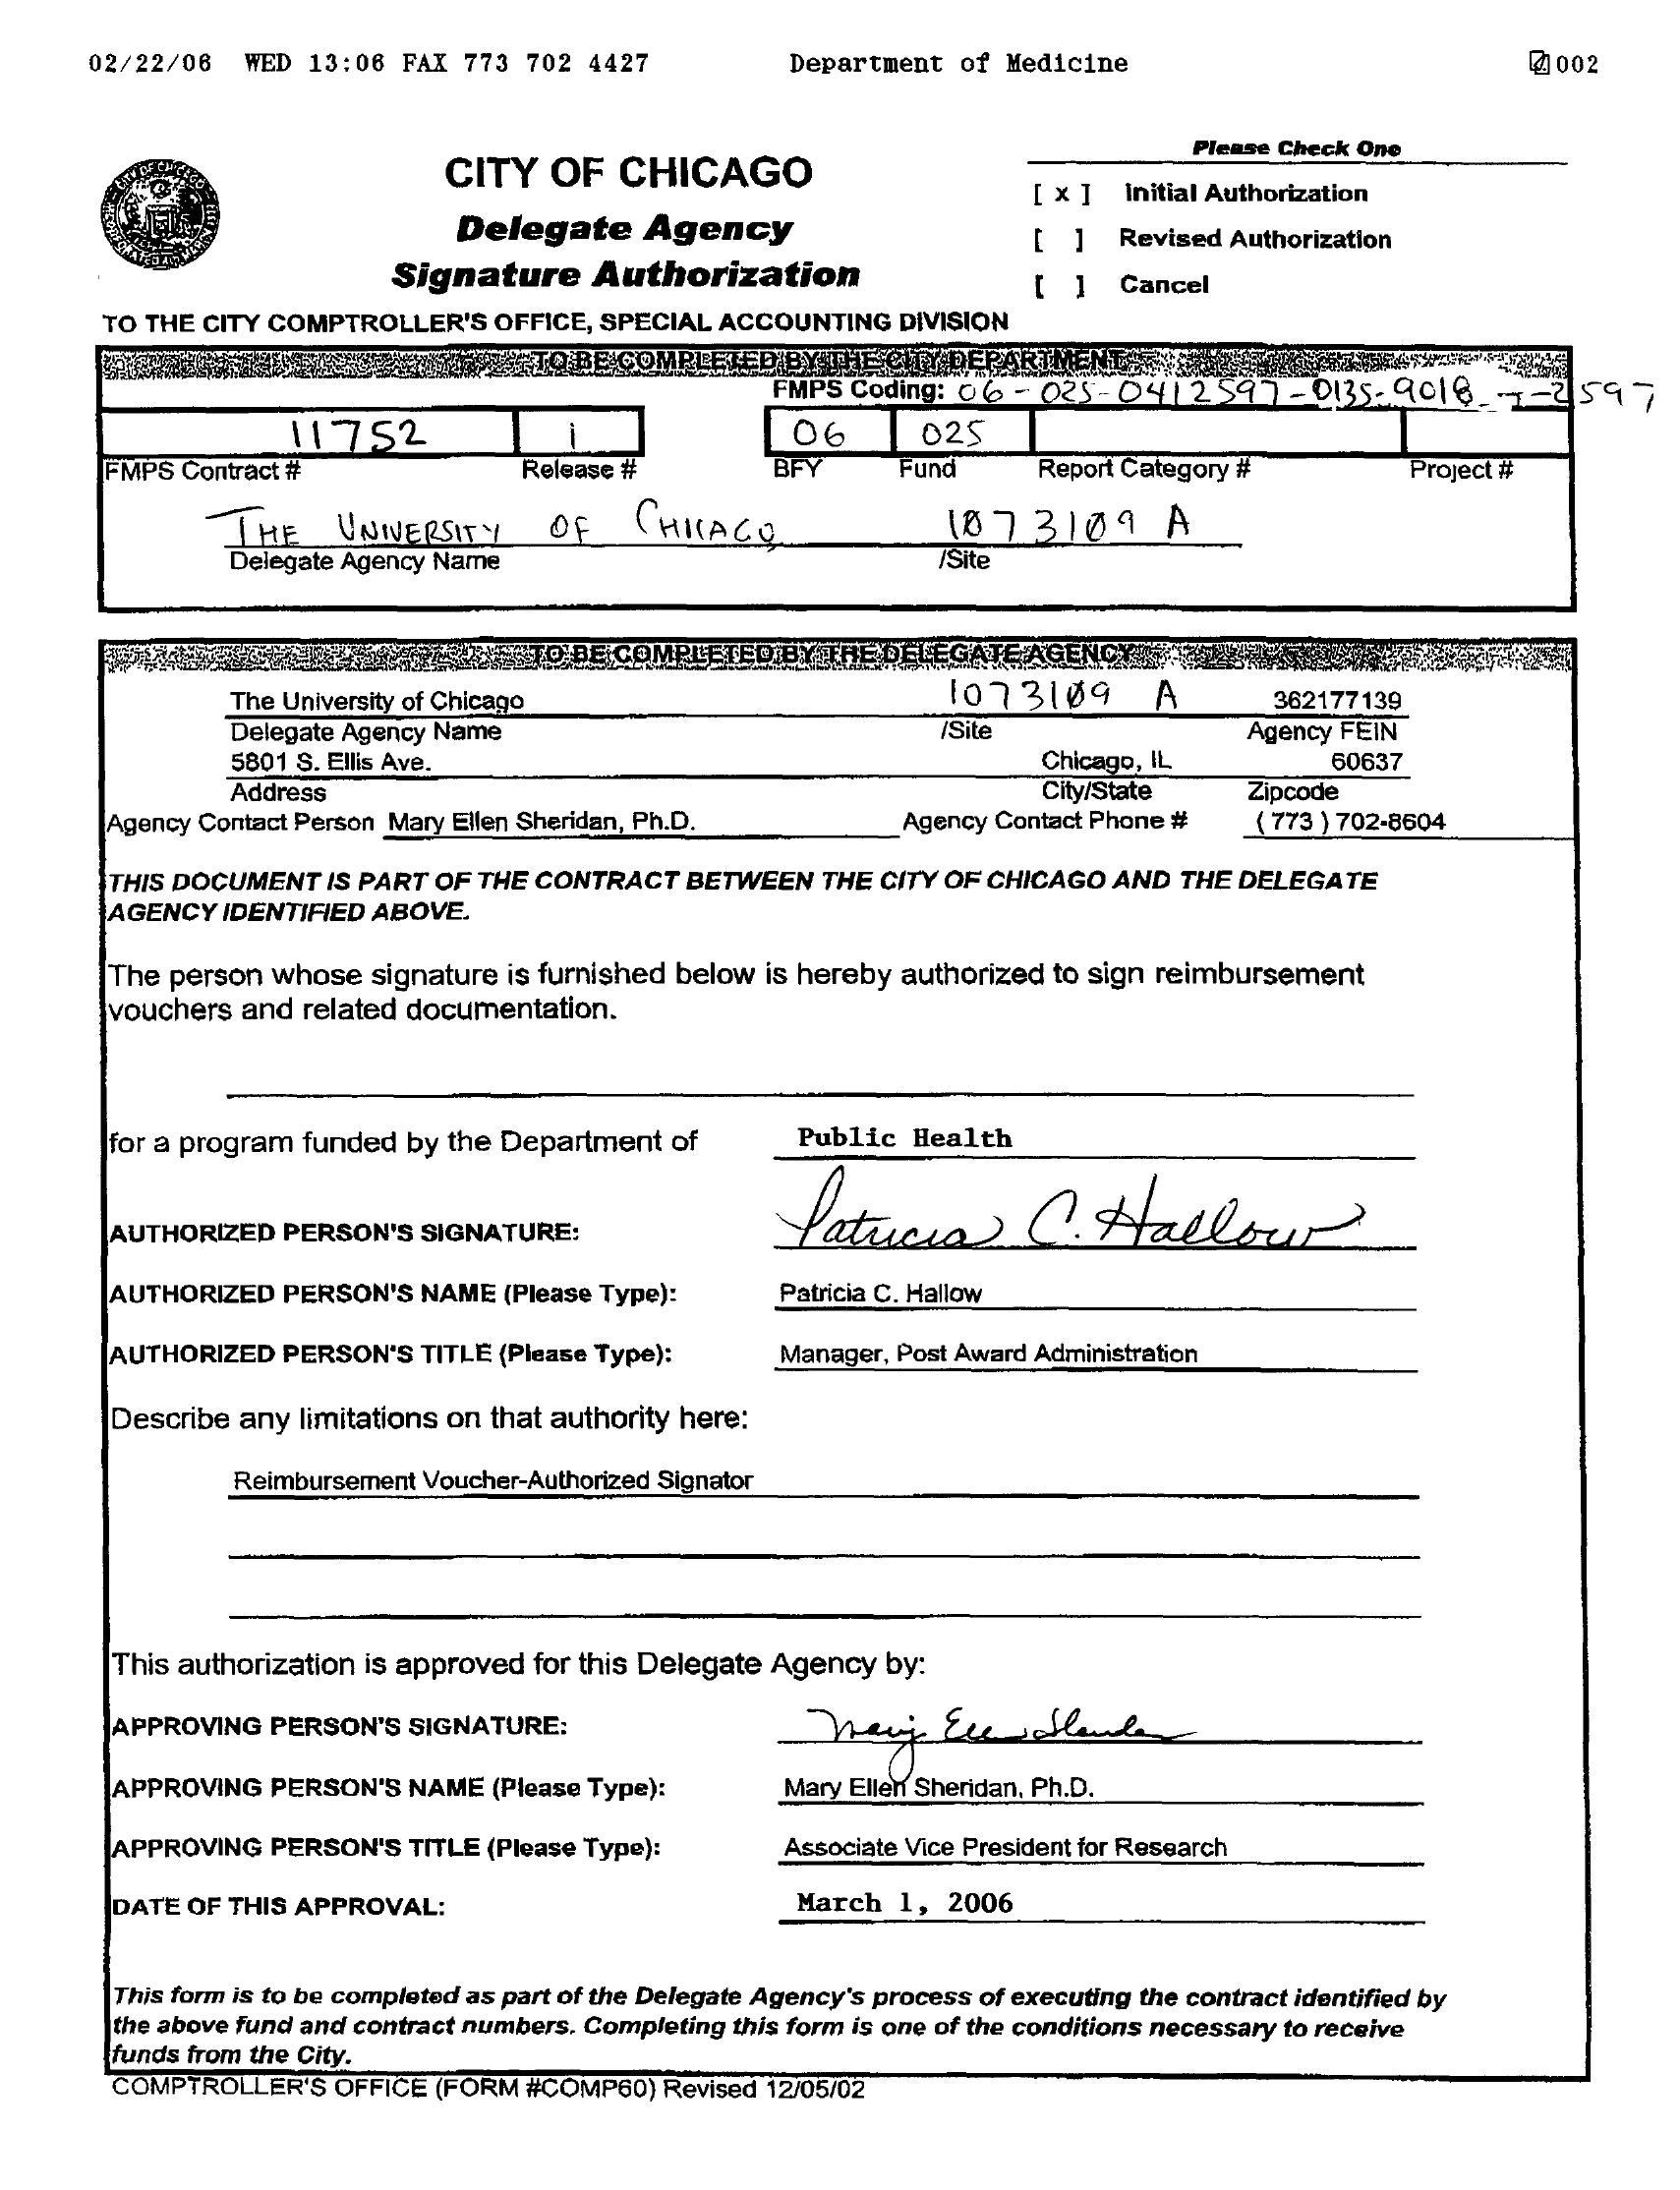 02/22/06 WED 13:06 FAX 773 702 4427 Department of Medicine 002
Please Check One
CITY OF CHICAGO
[ x ] Initial Authorization
Delegate Agency
[ ] Revised Authorization
Signature Authorization
[ ] Cancel
TO THE CITY COMPTROLLER'S OFFICE, SPECIAL ACCOUNTING DIVISION
TO BE COMPLETED BY THE CITY DEPARTMENT
FMPS Coding: 06-025-0412597-0135-9018-T-2597
11752 1 06 025
FMPS Contract # Release # BFY Fund Report Category # Project #
THE UNIVERSITY OF CHICAGO 1073109 A
Delegate Agency Name /Site
TO BE COMPLETED BY THE DELEGATE AGENCY
The University of Chicago 1073109 A 362177139
Delegate Agency Name /Site Agency FEIN
5801 S. Ellis Ave. Chicago, IL 60637
Address City/State Zipcode
Agency Contact Person Mary Ellen Sheridan, Ph.D. Agency Contact Phone # ( 773 ) 702-8604
THIS DOCUMENT IS PART OF THE CONTRACT BETWEEN THE CITY OF CHICAGO AND THE DELEGATE
AGENCY IDENTIFIED ABOVE.
The person whose signature is furnished below is hereby authorized to sign reimbursement
vouchers and related documentation.
for a program funded by the Department of Public Health
AUTHORIZED PERSON'S SIGNATURE: Patricia C. Hallow
AUTHORIZED PERSON'S NAME (Please Type): Patricia C. Hallow
AUTHORIZED PERSON'S TITLE (Please Type): Manager, Post Award Administration
Describe any limitations on that authority here:
Reimbursement Voucher-Authorized Signator
This authorization is approved for this Delegate Agency by:
APPROVING PERSON'S SIGNATURE: Mary Ellen Sheridan
APPROVING PERSON'S NAME (Please Type): Mary Ellen Sheridan, Ph.D.
APPROVING PERSON'S TITLE (Please Type): Associate Vice President for Research
DATE OF THIS APPROVAL: March 1, 2006
This form is to be completed as part of the Delegate Agency's process of executing the contract identified by
the above fund and contract numbers. Completing this form is one of the conditions necessary to receive
funds from the City.
COMPTROLLER'S OFFICE (FORM #COMP60) Revised 12/05/02